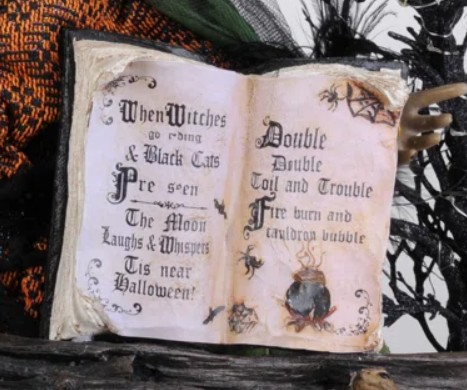 When Witches
go riding
& Black Cats
Are seen
The Moon
Laughs & Whispers
Tis near
Halloween!
Double
Double
Toil and Trouble
Fire burn and
cauldron bubble